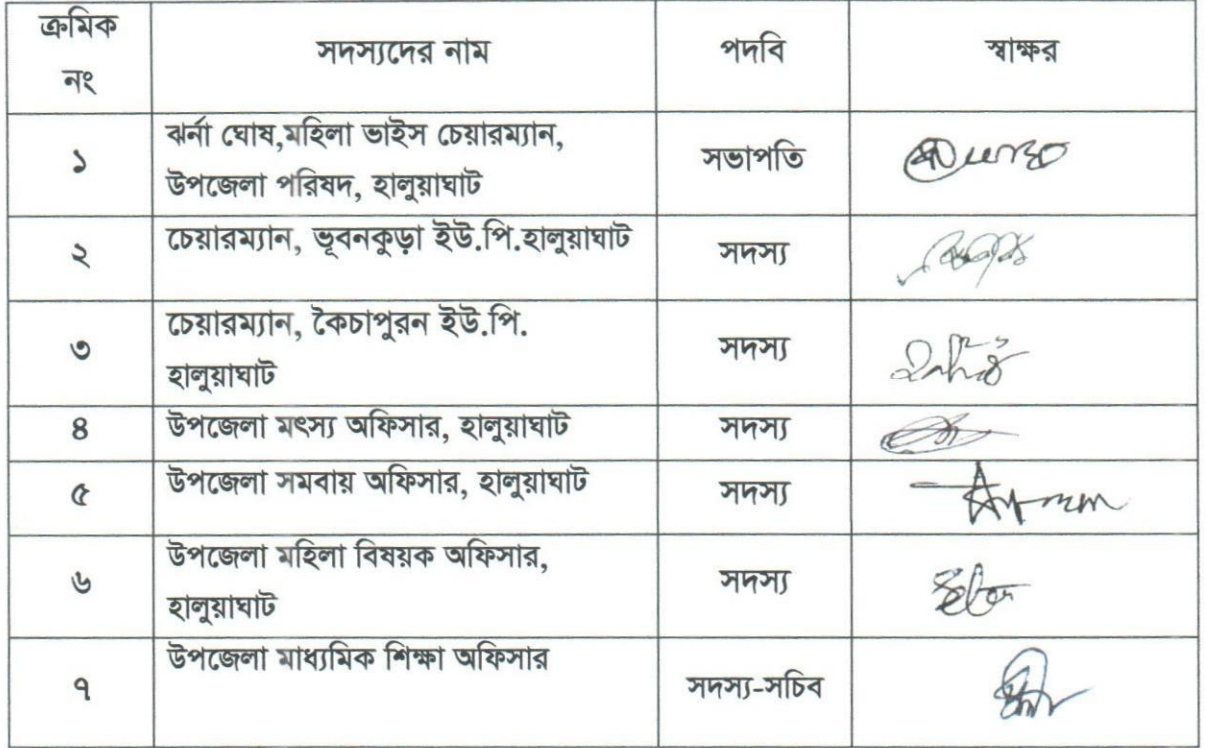 ক্রমিক নং সদস্যদের নাম পদবি স্বাক্ষর
১ ঝর্না ঘোষ,মহিলা ভাইস চেয়ারম্যান, সভাপতি
উপজেলা পরিষদ, হালুয়াঘাট
২ চেয়ারম্যান, ভূবনকুড়া ইউ.পি.হালুয়াঘাট সদস্য
৩ চেয়ারম্যান, কৈচাপুরন ইউ.পি. সদস্য
হালুয়াঘাট
৪ উপজেলা মৎস্য অফিসার, হালুয়াঘাট সদস্য
৫ উপজেলা সমবায় অফিসার, হালুয়াঘাট সদস্য
৬ উপজেলা মহিলা বিষয়ক অফিসার, সদস্য
হালুয়াঘাট
৭ উপজেলা মাধ্যমিক শিক্ষা অফিসার সদস্য-সচিব